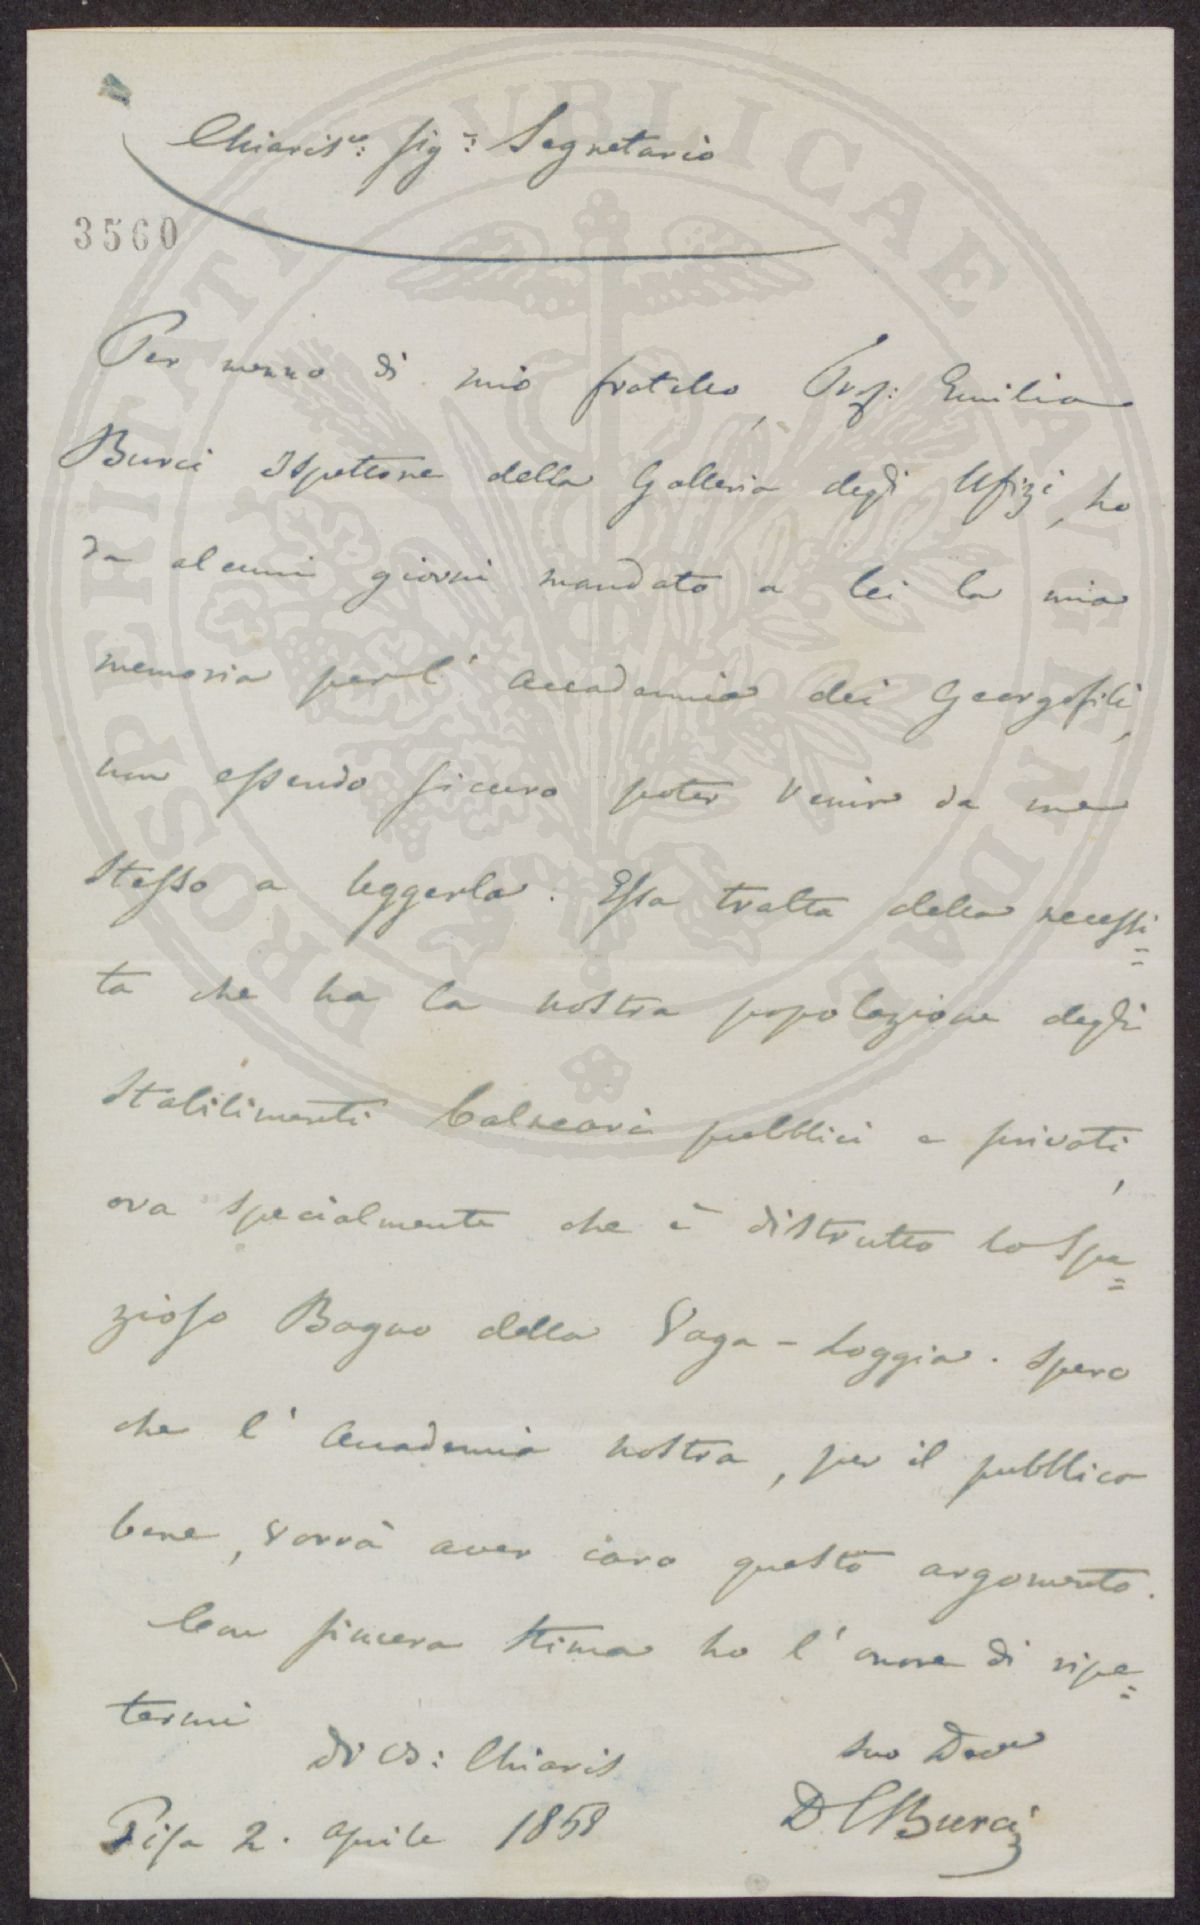 Chiaris.mo Sig.r Segretario
3560
Per mezzo di mio fratello, Prof: Emilio
Burci Ispettore della Galleria degli Ufizi, ho
da alcuni giorni mandato a lei la mia
memoria per l'Accademia dei Georgofili,
non essendo sicuro poter venire da me
stesso a leggerla. Essa tratta della necessi=
ta che ha la nostra popolazione degli
Stabilimenti balneari pubblici e privati,
ora specialmente che è distrutto lo Spa=
zioso Bagno della Vaga-Loggia. Spero
che l'Accademia nostra, per il pubblico
bene, vorrà aver caro questo argomento.
Con sincera stima ho l'onore di ripe=
termi
Di VS: Chiaris
suo Dev.mo
Pisa 2. Aprile 1858
D C Burci
PROSPERITATI PUBLICAE AUGENDAE